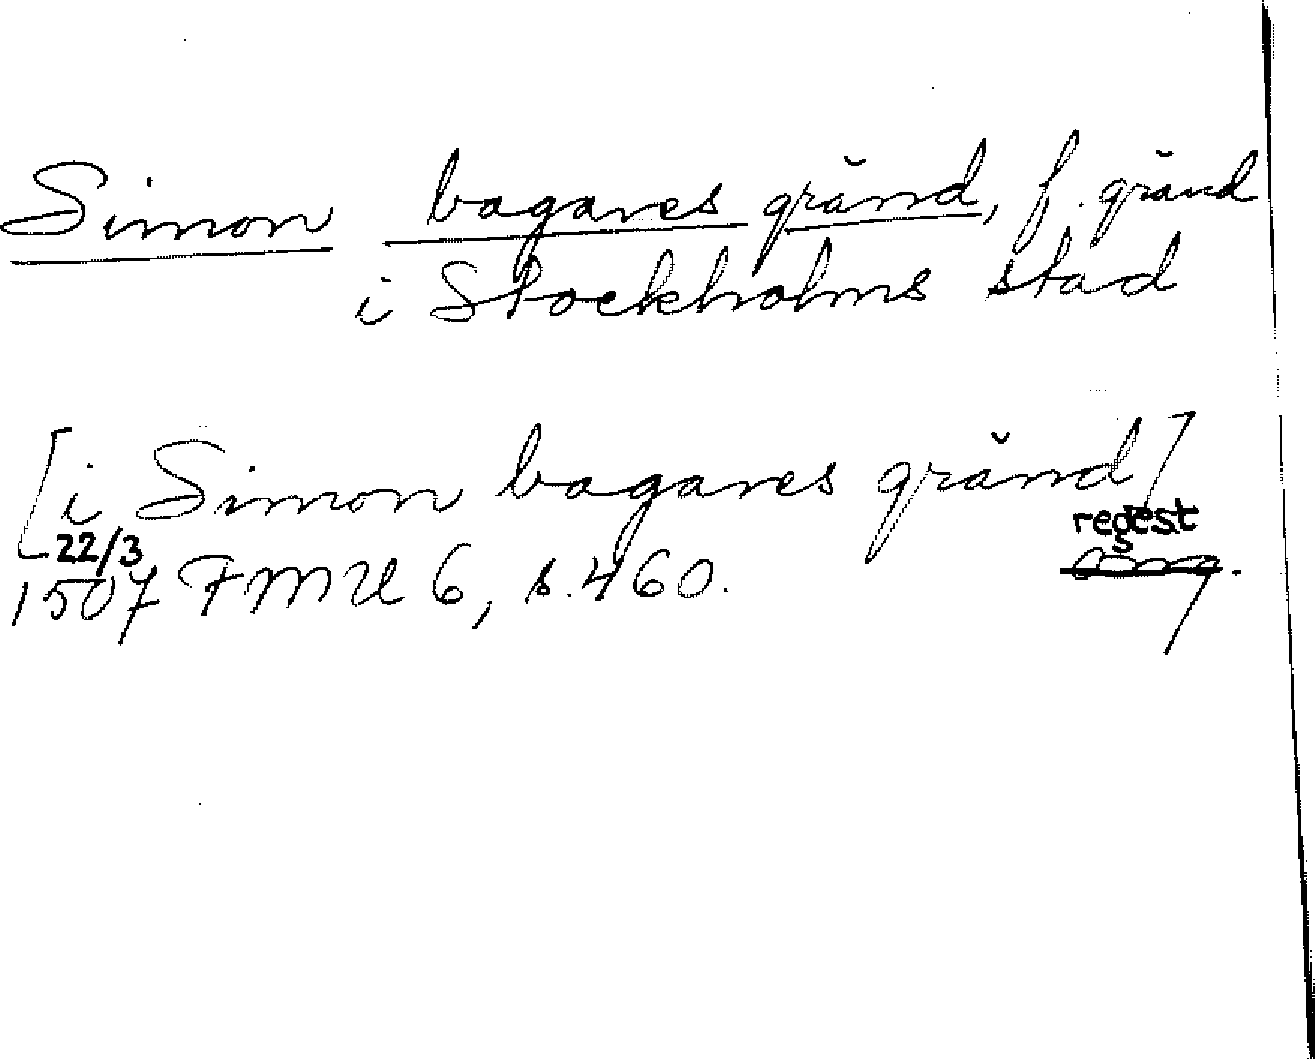 Simon bagares gränd, f. gränd
i Stockholms stad
[i Simon bagares gränd]
regest
22/3
1507 FMU 6, s. 460.